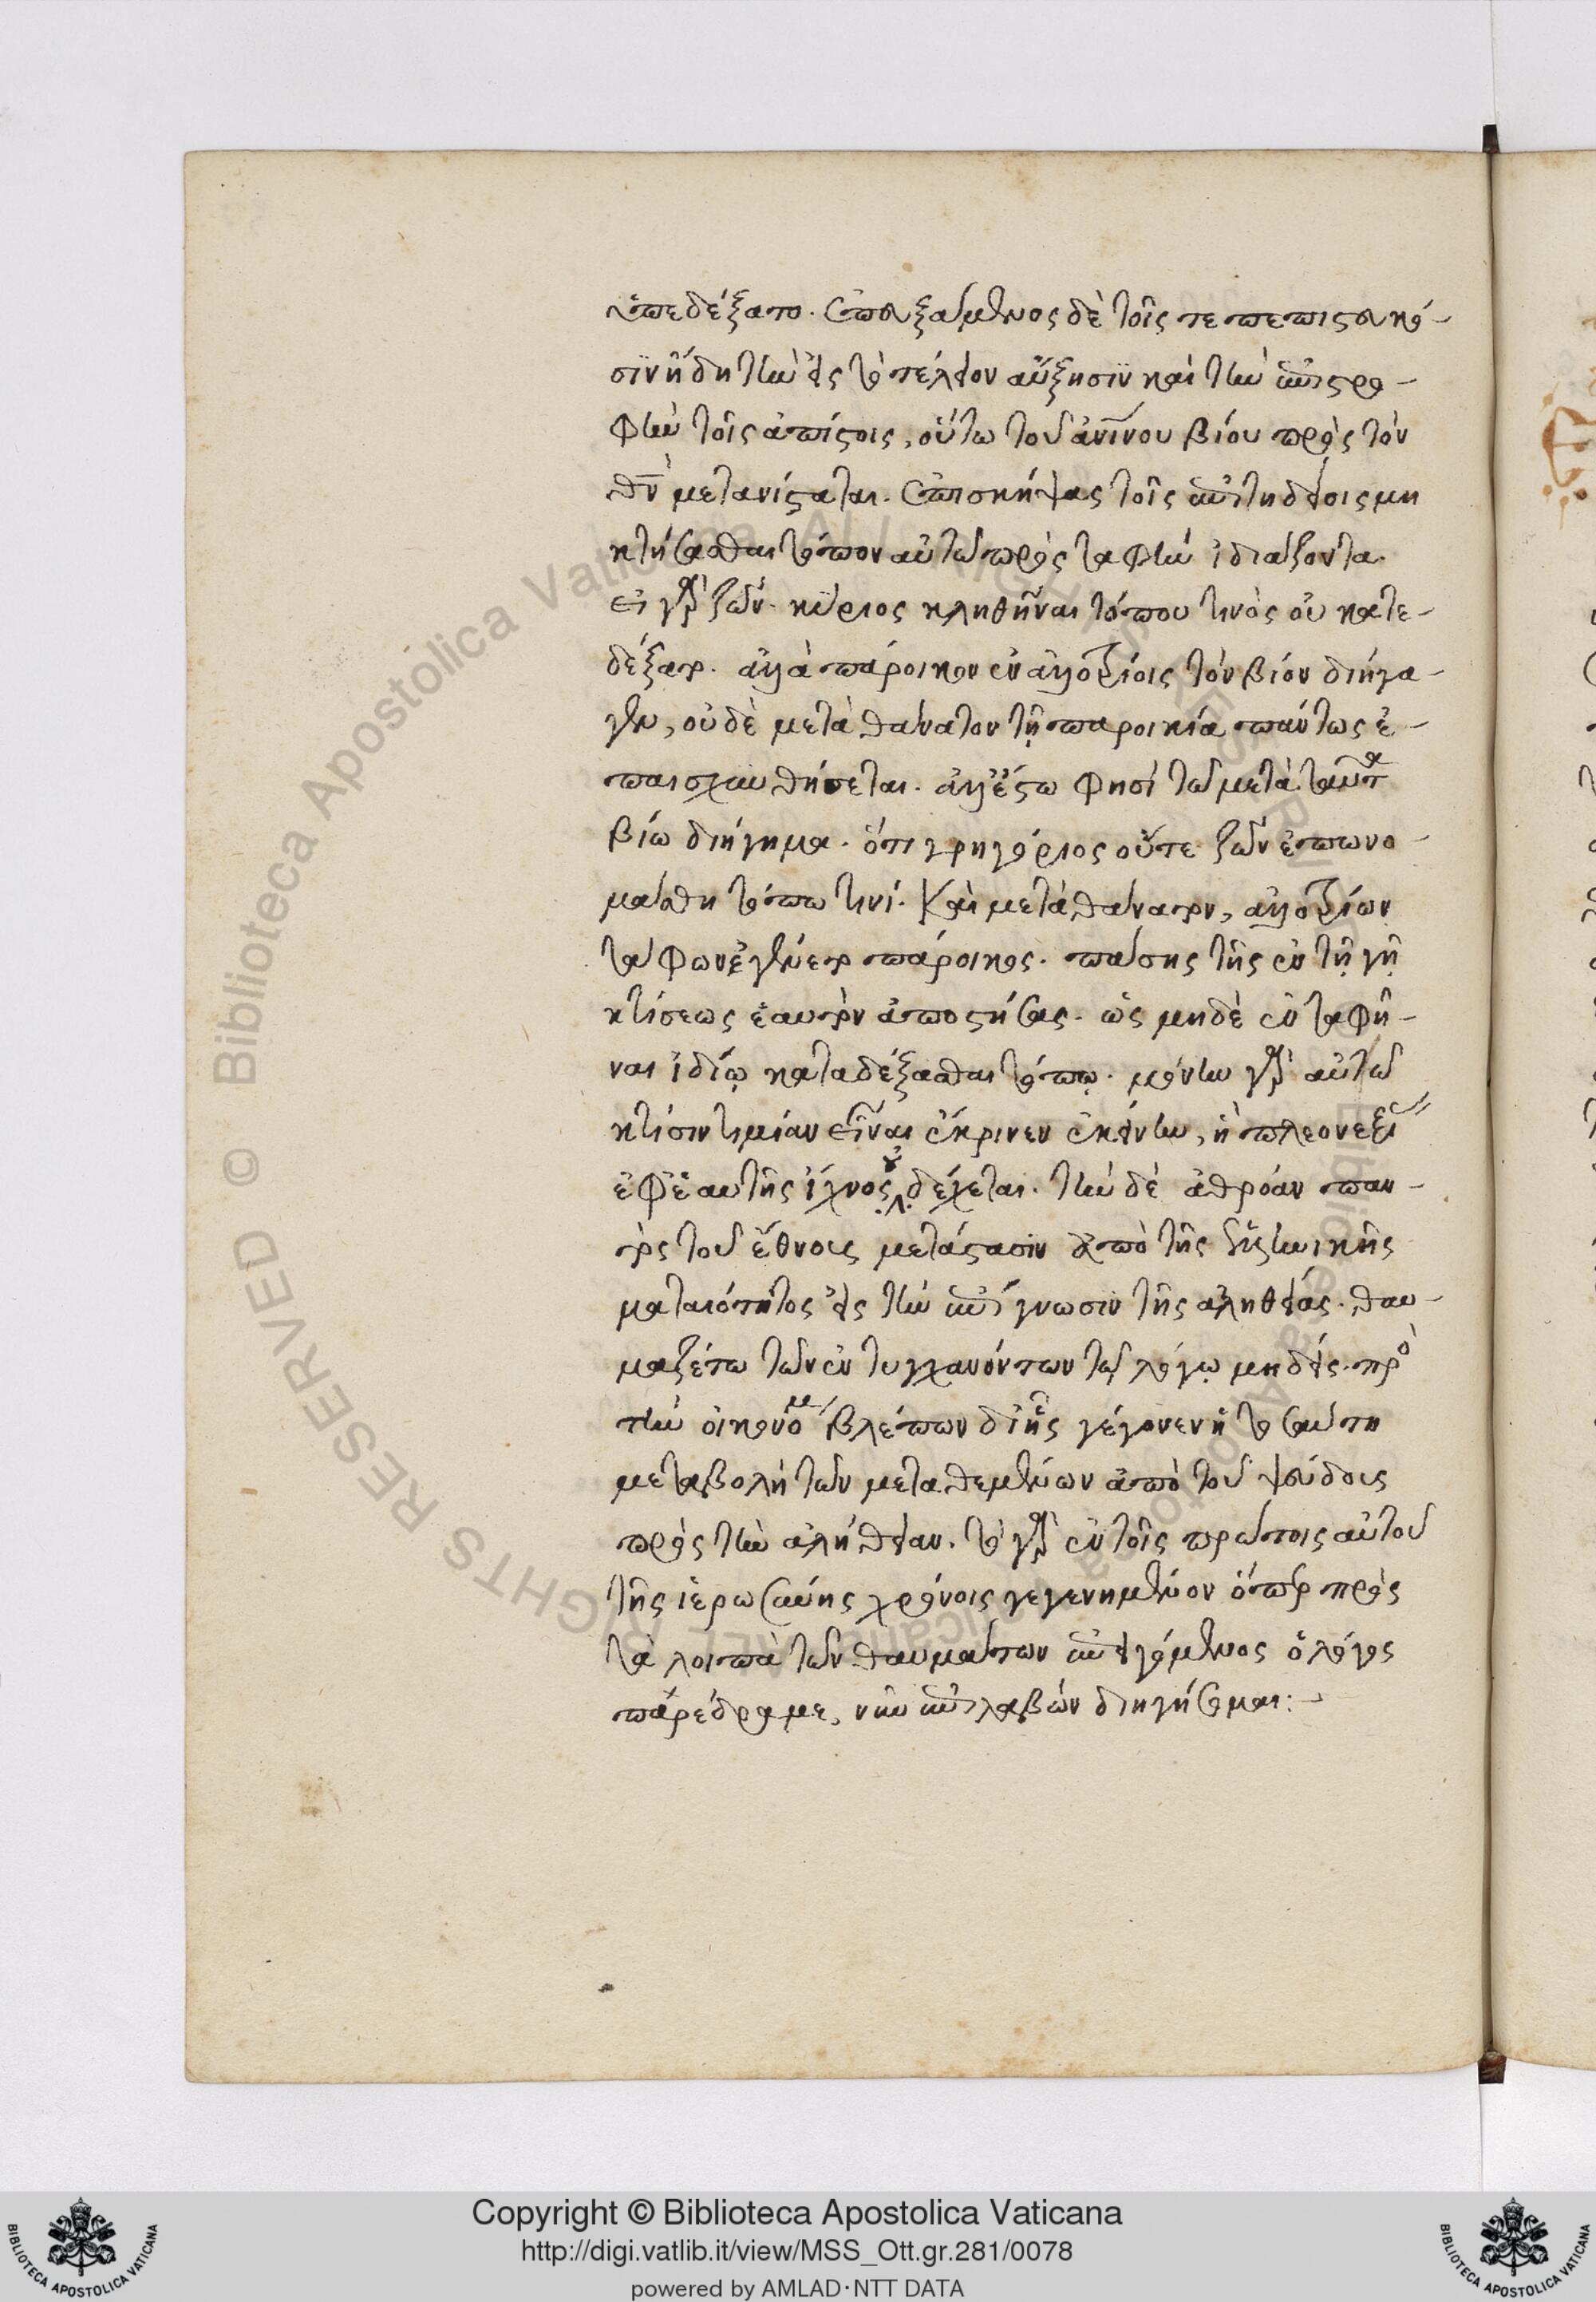 ὑπεδέξατο. ἐπευξάμενος δὲ τοῖς τε πεπιστευκό-
σιν ἤδη τὴν εἰς τὸ τέλειον αὔξησιν καὶ τὴν ἐπιστρο-
φὴν τοῖς ἀπίστοις, οὕτω τοῦ ἀνίνου βίου πρὸς τὸν
θν μετανίσταται. ἐπισκήψας τοῖς ἐπιτηδείοις μὴ
κτήσασθαι τόπον αὐτῶ πρὸς ταφὴν ἰδιάζοντα.
εἰ γὰρ ζῶν. κύριος κληθῆναι τόπου τινὸς οὐ κατε-
δέξατο. ἀλλὰ πάροικον ἐν ἀλλοτρίοις τὸν βίον διήγα-
γεν, οὐδὲ μετὰ θάνατον τῇ παροικία πάντως ἐ-
παισχυνθήσεται. ἀλλ' ἔστω φησὶ τῶ μετὰ ταῦτα
βίω διήγημα. ὅτι γρηγόριος οὔτε ζῶν ἐπωνο-
μάσθη τόπω τινί. Καὶ μετὰ θάνατον, ἀλλοτρίων
τάφων ἐγένετο πάροικος. πάσης τῆς ἐν τῇ γῇ
κτίσεως ἑαυτὸν ἀποστήσας. ὡς μηδὲ ἐν ταφῆ-
ναι ἰδίῳ καταδέξασθαι τόπῳ. μόνην γὰρ αὐτῶ
κτίσιν τιμίαν εἶναι ἔκρινεν ἐκείνην, ἣ πλεονεξίας
ἐφ' ἑαυτῆς ἴχνος οὐ δέχεται. τὴν δὲ ἀθρόαν παν-
τὸς τοῦ ἔθνους μετάστασιν ἀπὸ τῆς ἑλληνικῆς
ματαιότητος εἰς τὴν ἐπίγνωσιν τῆς ἀληθείας. θαυ-
μαζέτω τῶν ἐντυγχανόντων τῷ λόγῳ μηδείς. πρὸ
τὴν οἰκονομίαν βλέπων δι' ἧς γέγονεν ἡ τοσαύτη
μεταβολὴ τῶν μεταθεμένων ἀπὸ τοῦ ψεύδους
πρὸς τὴν ἀλήθειαν. τὸ γὰρ ἐν τοῖς πρώτοις αὐτοῦ
τῆς ἱερωσύνης χρόνοις γεγενημένον ὅπερ πρὸς
τὰ λοιπὰ τῶν θαυμάτων ἐπειγόμενος ὁ λόγος
παρέδραμε, νῦν ἐπιλαβὼν διηγήσομαι:
© Biblioteca Apostolica Vaticana ALL RIGHTS RESERVED
Copyright © Biblioteca Apostolica Vaticana
http://digi.vatlib.it/view/MSS_Ott.gr.281/0078
powered by AMLAD·NTT DATA
BIBLIOTECA APOSTOLICA VATICANA
BIBLIOTECA APOSTOLICA VATICANA